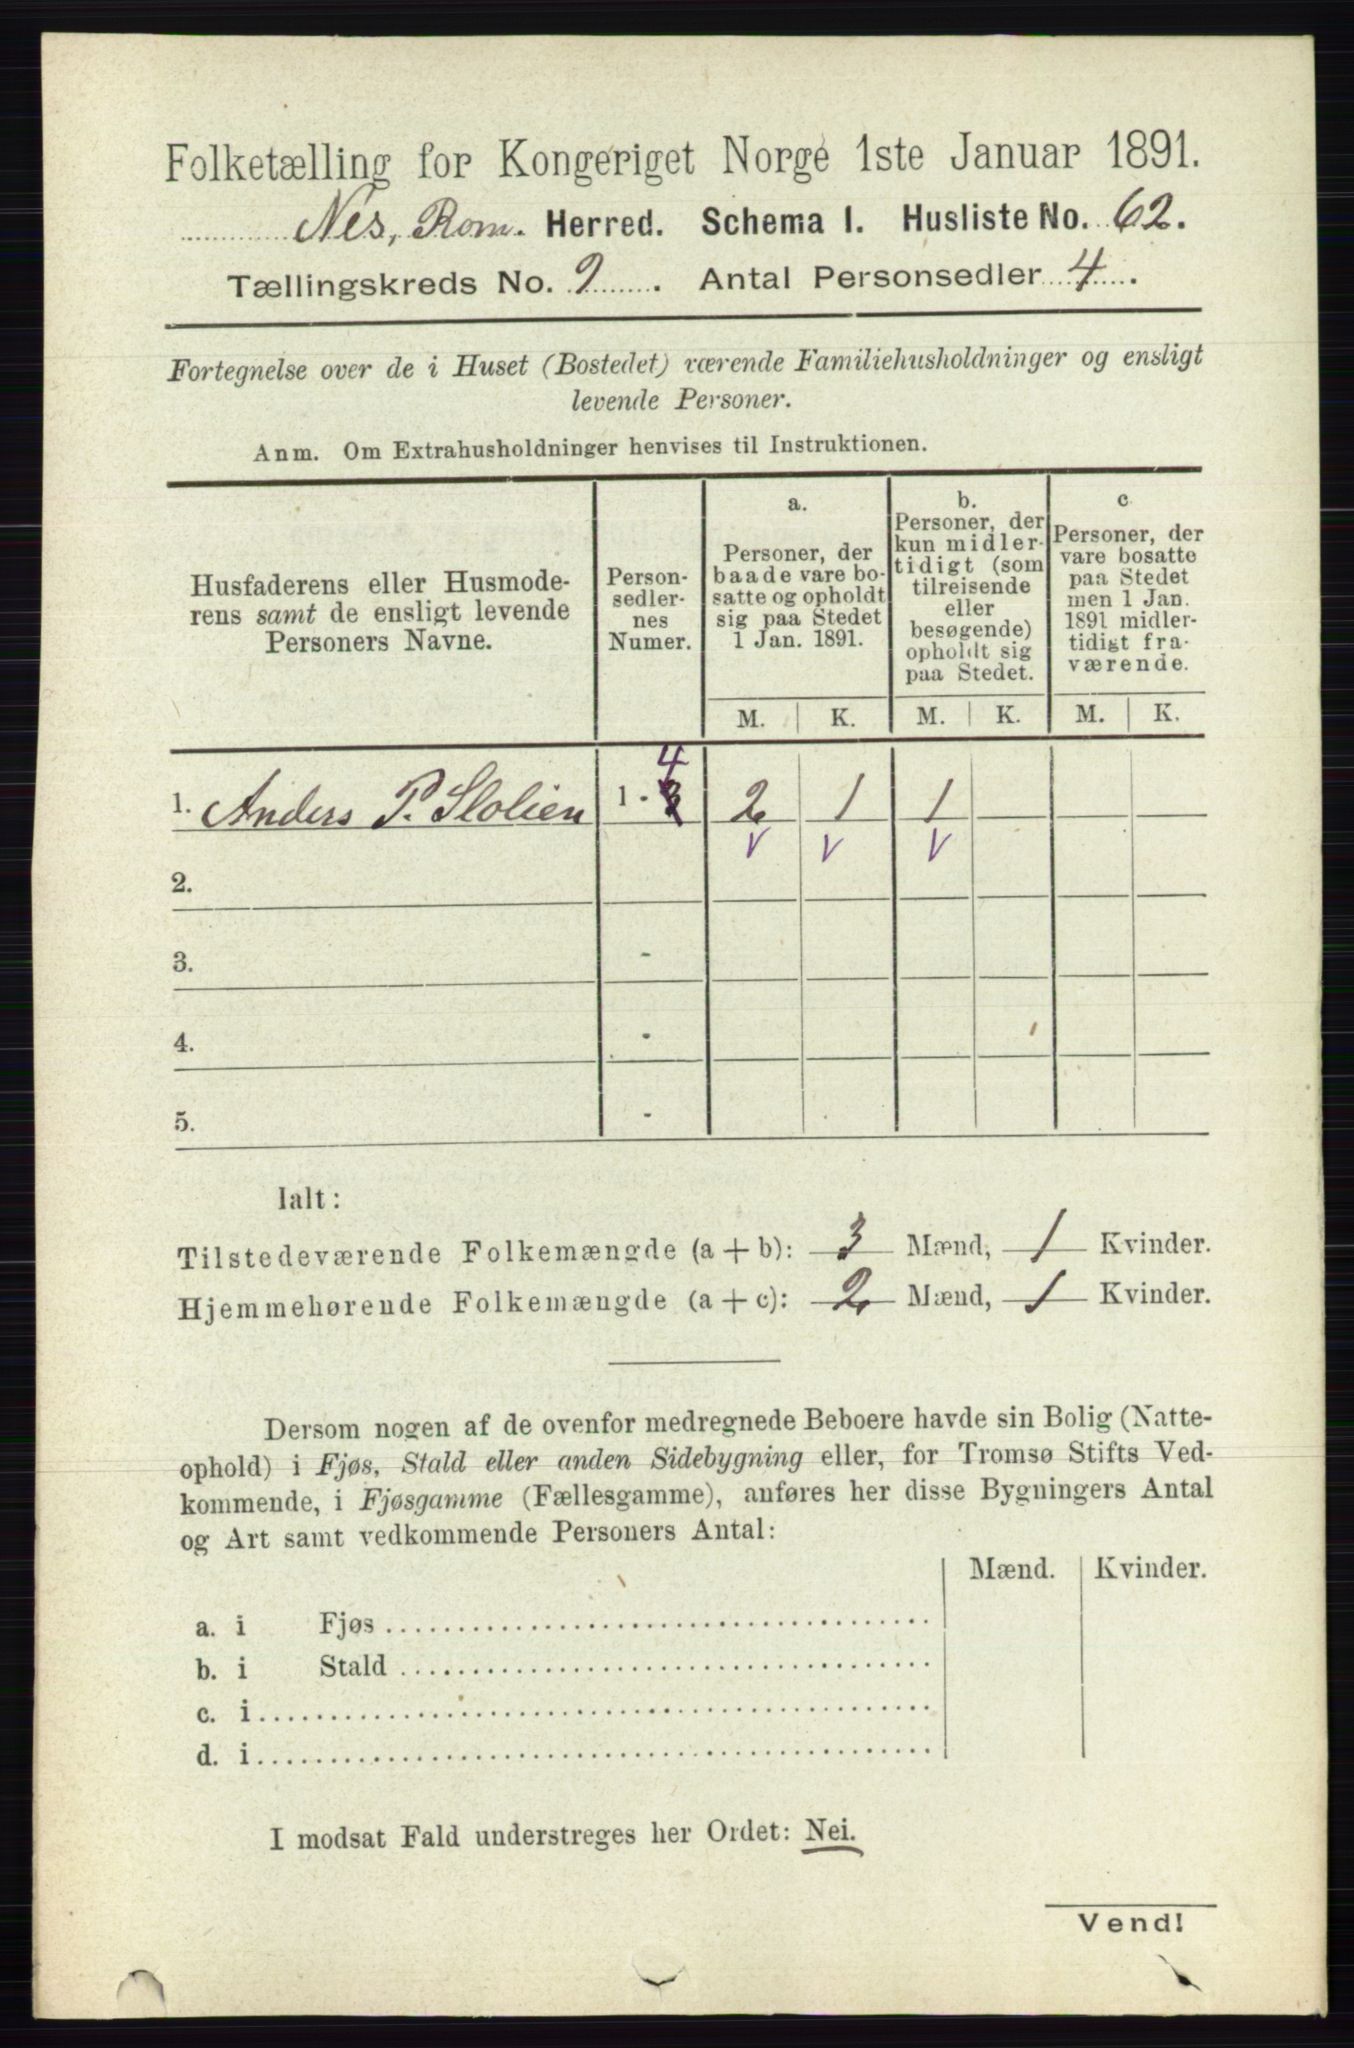 Folketælling for Kongeriget Norge 1ste Januar 1891.
Nes, Rom. Herred. Schema I. Husliste No. 62.
Tællingskreds No. 9. Antal Personsedler 4.
Fortegnelse over de i Huset (Bostedet) værende Familiehusholdninger og ensligt
levende Personer.
Anm. Om Extrahusholdninger henvises til Instruktionen.
Husfaderens eller Husmode-
rens samt de ensligt levende
Personers Navne.
Person-
sedler-
nes
Numer.
a.
Personer, der
baade vare bo-
satte og opholdt
sig paa Stedet
1 Jan. 1891.
b.
Personer, der
kun midler-
tidigt (som
tilreisende
eller
besøgende)
opholdt sig
paa Stedet.
c
Personer, der
vare bosatte
paa Stedet
men 1 Jan.
1891 midler-
tidigt fra-
værende.
M. K. M. K. M. K.
4
1. Anders P. Slolien 1 - 3 2 1 1
V V V
2.
3. -
4. -
5. -
Ialt:
Tilstedeværende Folkemængde (a + b): 3 Mænd, 1 Kvinder.
Hjemmehørende Folkemængde (a + c): 2 Mænd, 1 Kvinder.
Dersom nogen af de ovenfor medregnede Beboere havde sin Bolig (Natte-
ophold) i Fjøs, Stald eller anden Sidebygning eller, for Tromsø Stifts Ved-
kommende, i Fjøsgamme (Fællesgamme), anføres her disse Bygningers Antal
og Art samt vedkommende Personers Antal:
Mænd. Kvinder.
a. i Fjøs
b. i Stald
c. i
d. i
I modsat Fald understreges her Ordet: Nei.
Vend!